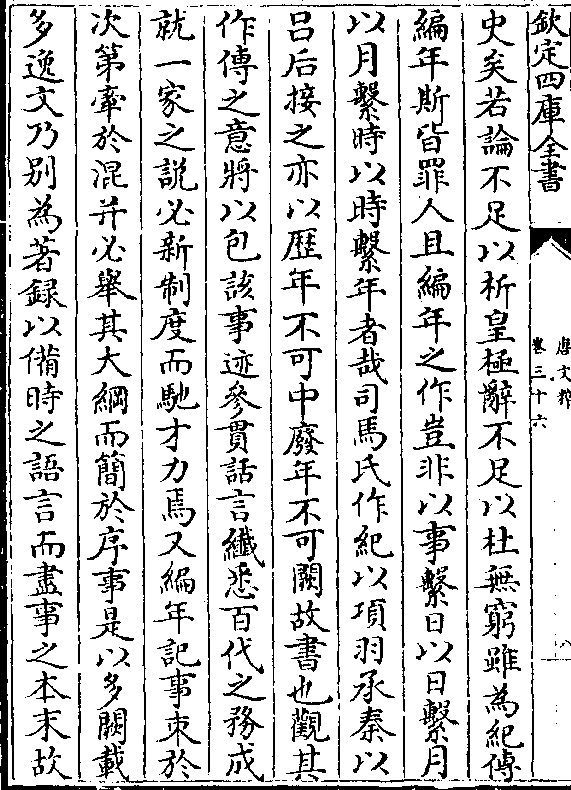 欽定四庫全書
唐文粹
卷三十六
史矣若論不足以析皇極辭不足以杜無窮雖為紀傳
編年斯皆罪人且編年之作豈非以事繫日以日繫月
以月繫時以時繫年者哉司馬氏作紀以項羽承秦以
吕后接之亦以歴年不可中廢年不可闕故書也觀其
作傳之意將以包該事迹參貫話言纎悉百代之務成
就一家之說必新制度而馳才力焉又編年記事束於
次第牽於混并必舉其大綱而簡於序事是以多闕載
多逸文乃别為著録以備時之語言而盡事之本末故